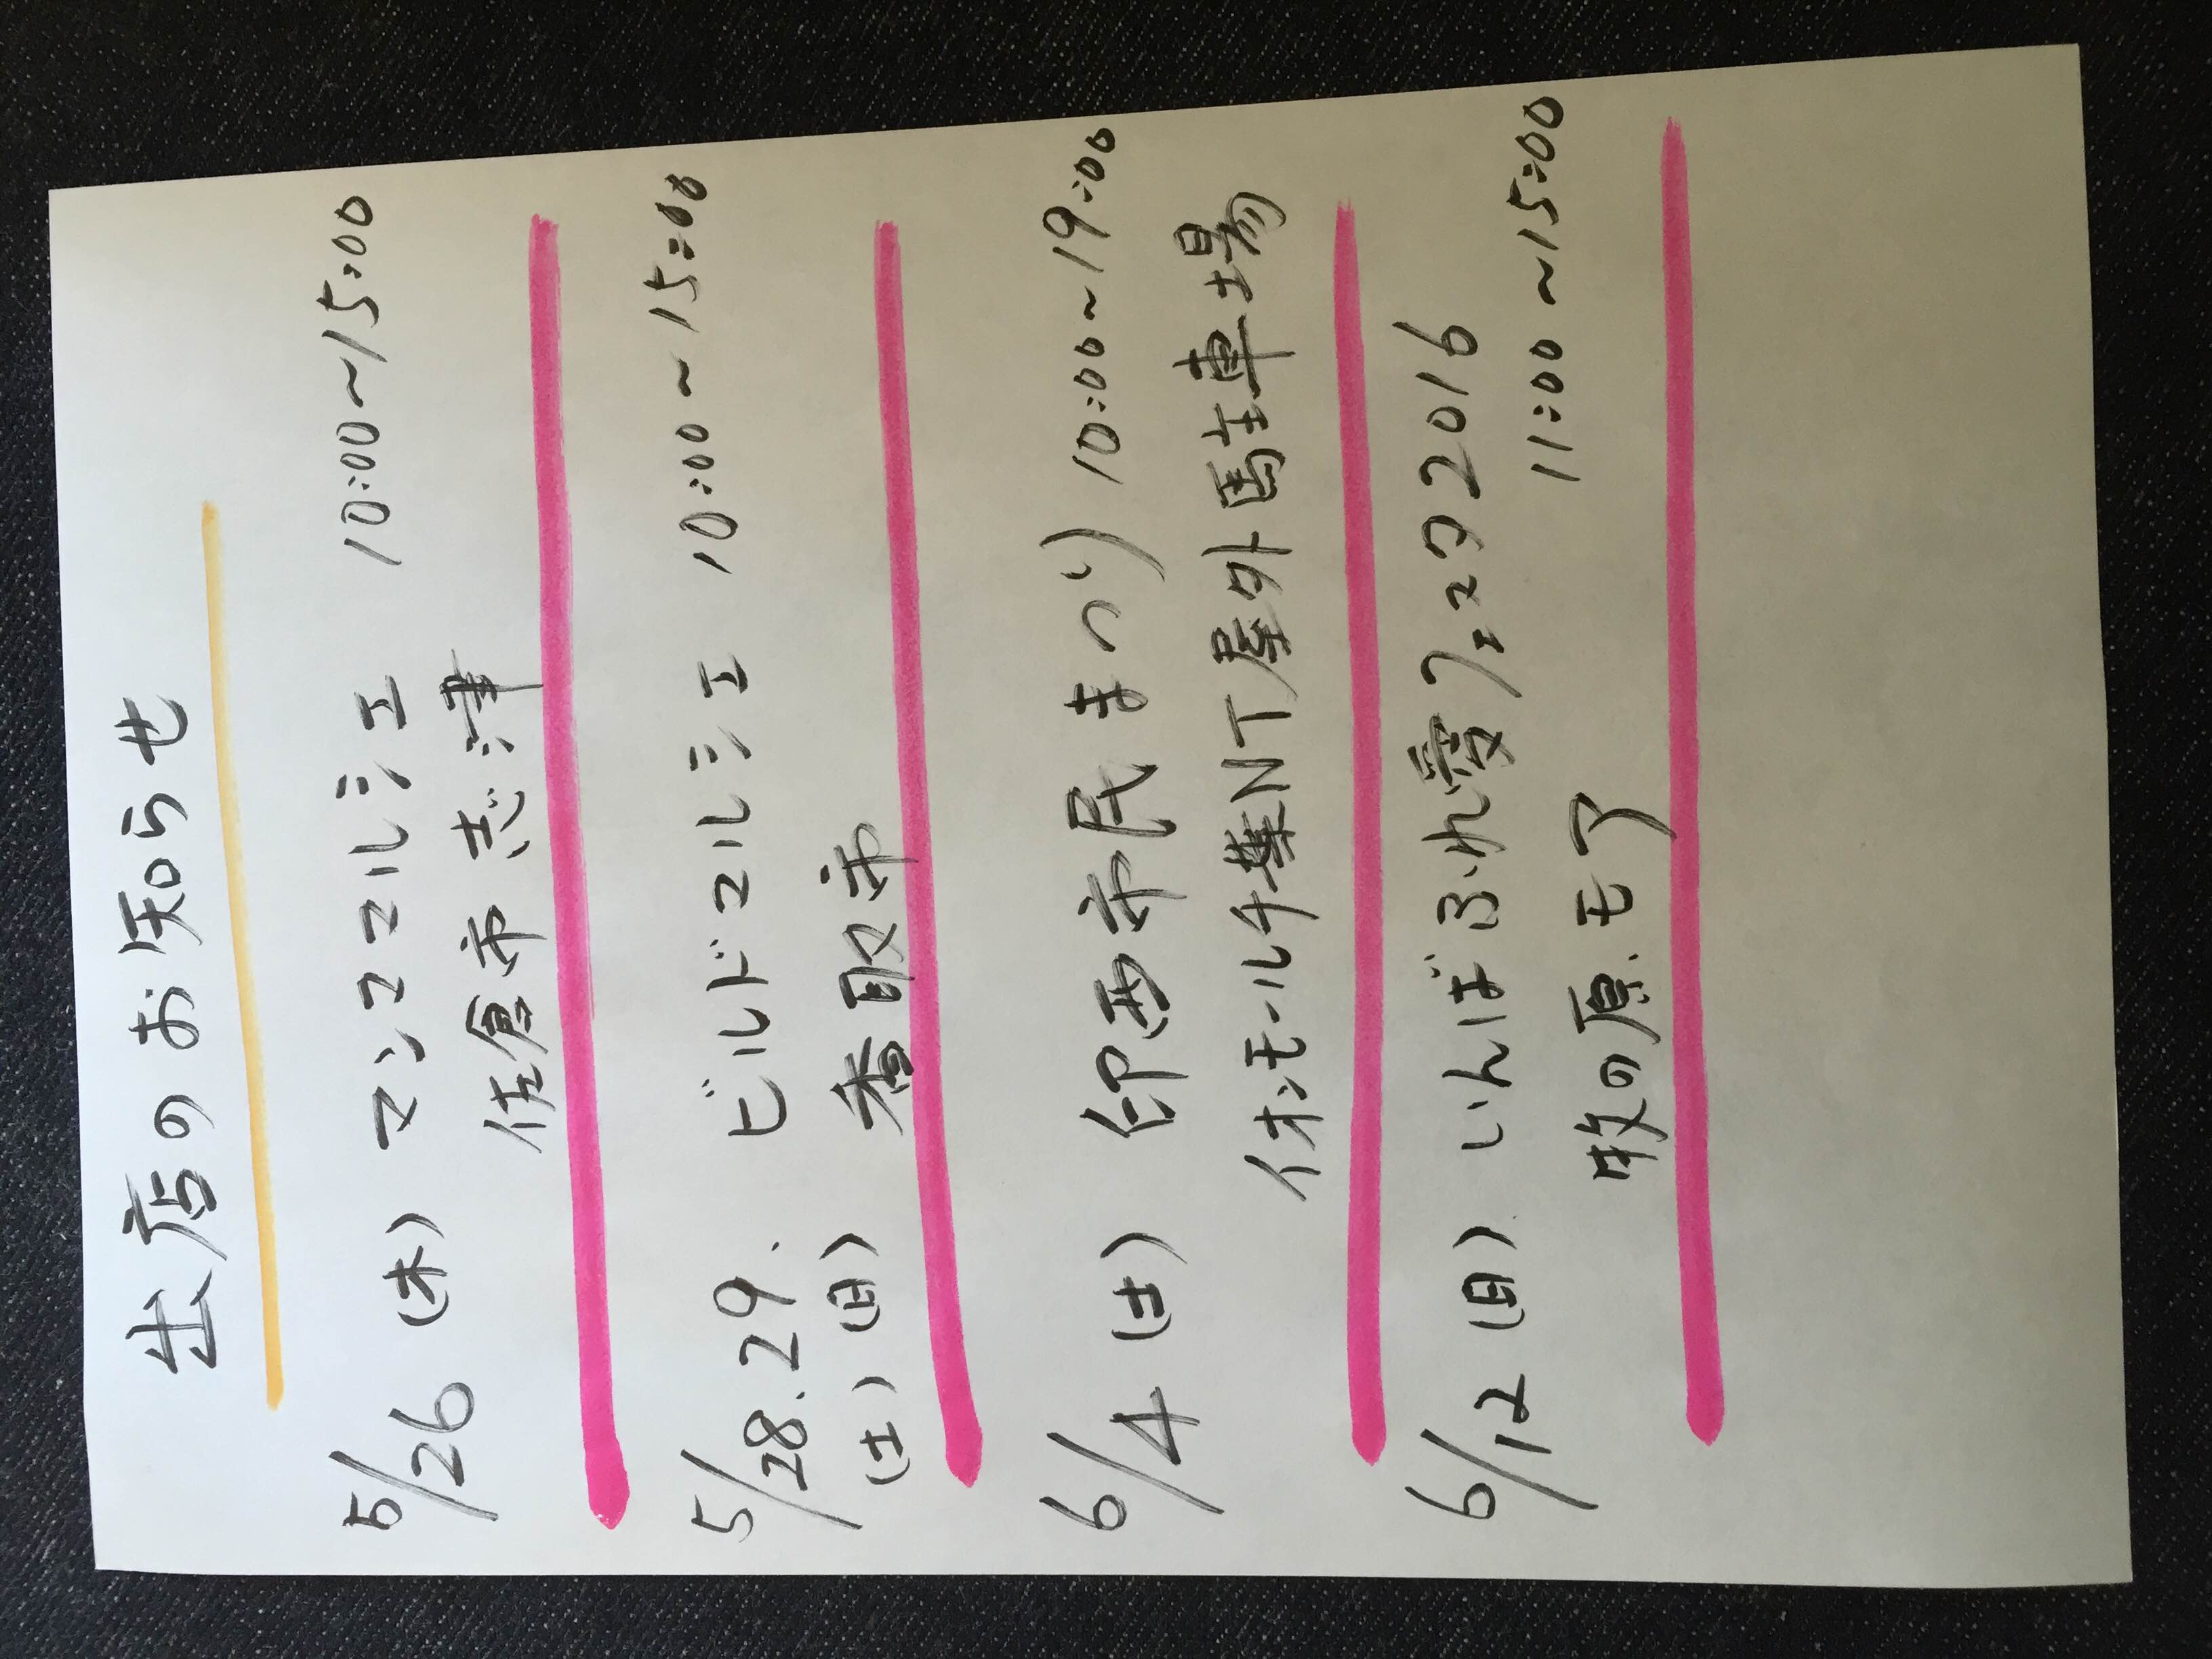 出店のお知らせ
5/26 (木) マンママルシェ 10:00~15:00
佐倉市 志津
5/28.29. ビルドマルシェ 10:00~15:00
(土)(日) 香取市
6/4 (土) 印西市民まつり 10:00~19:00
イオンモール千葉NT屋外駐車場
6/12 (日) いんばふれ愛フェスタ2016
11:00~15:00
牧の原モア